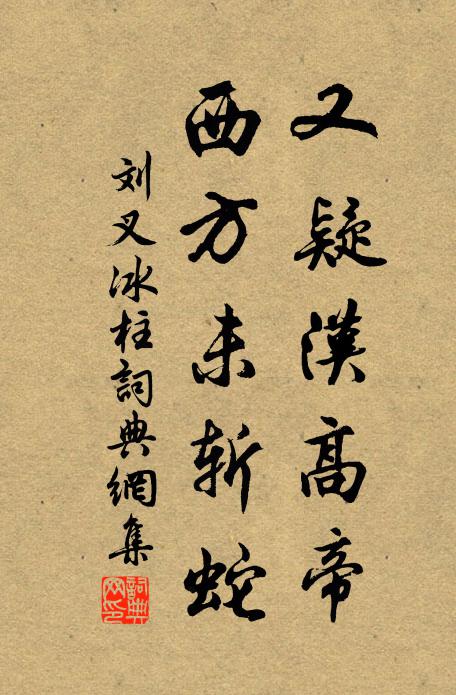 又疑漢高帝
西方未斬蛇
刘叉冰柱詞典網集
詞典
网印